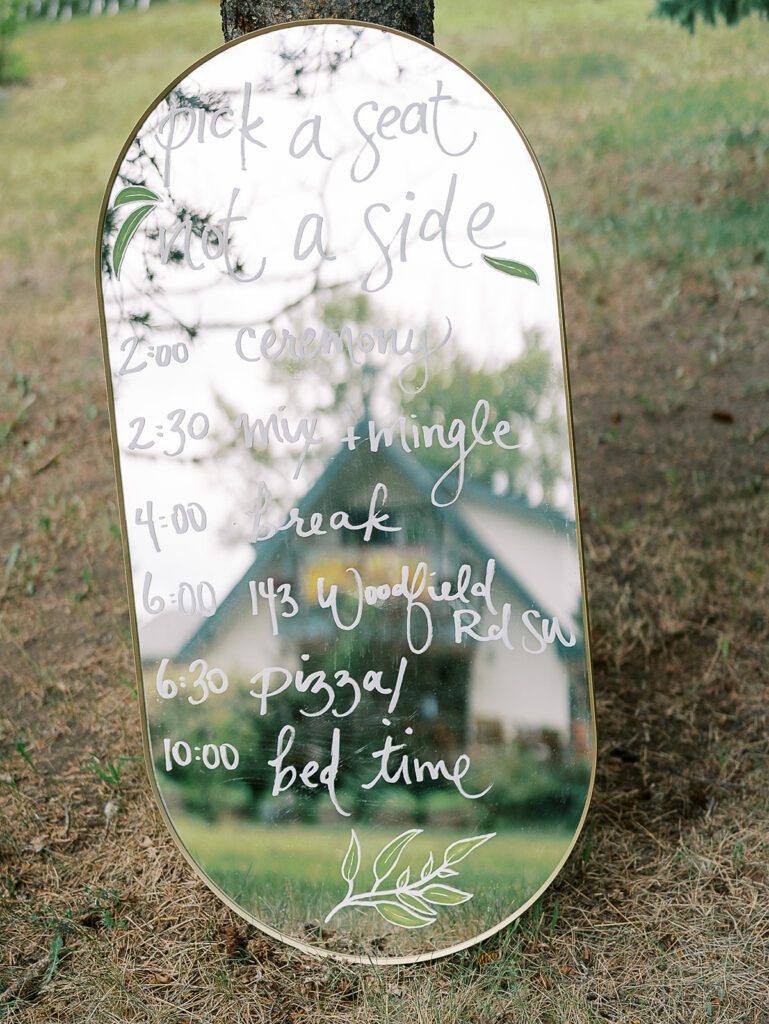 pick a seat
not a side
2:00 ceremony
2:30 mix + mingle
4:00 break
6:00 143 Woodfield
Rd SW
6:30 pizza/
10:00 bed time